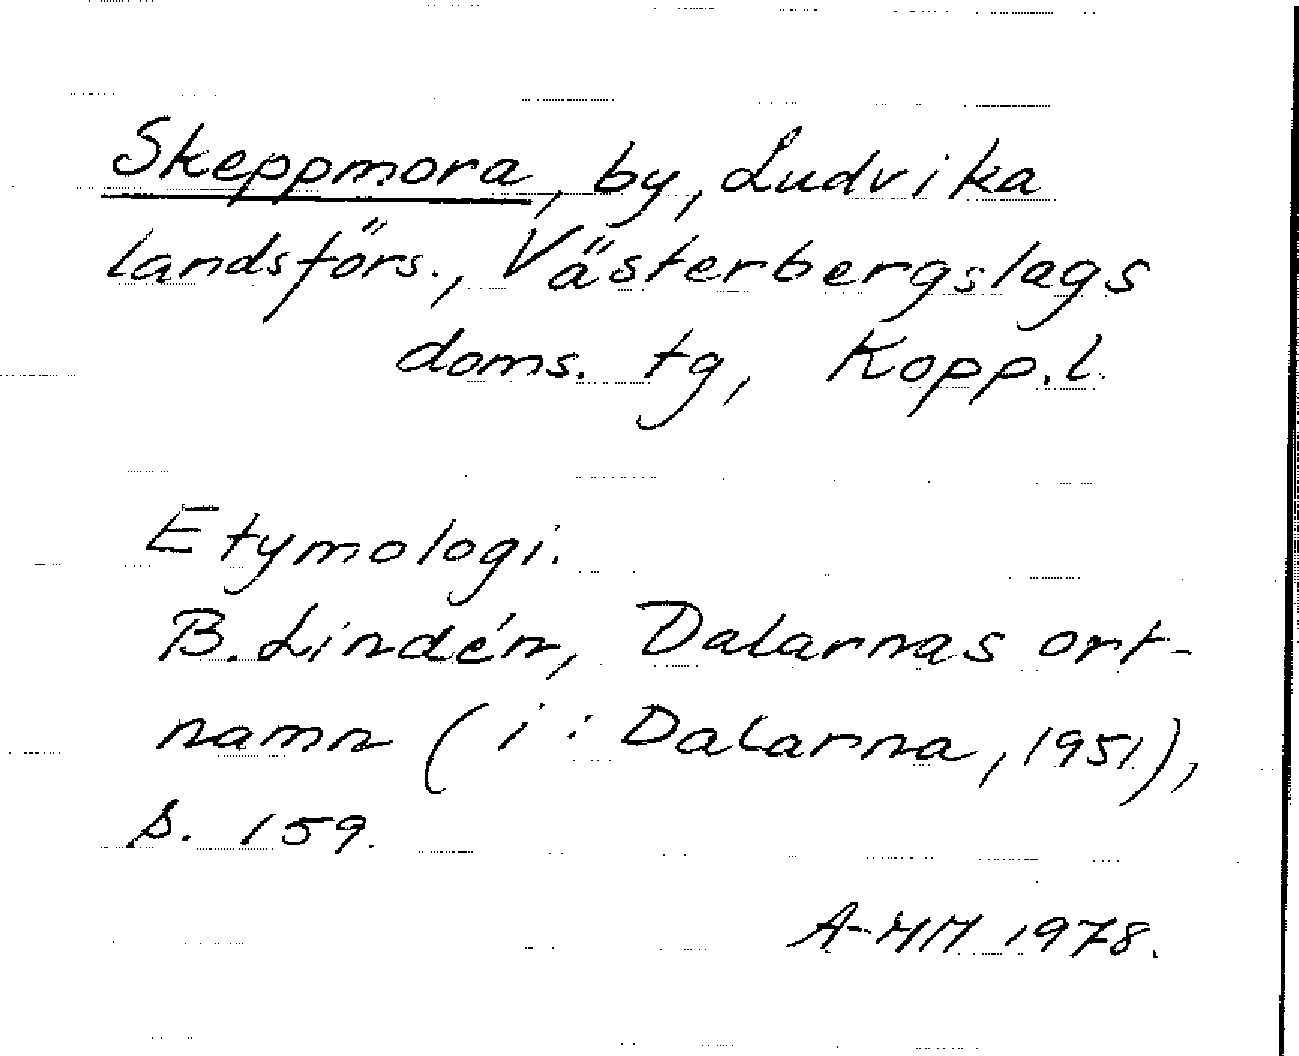 Skeppmora, by, Ludvika
landsförs., Västerbergslags
doms. tg, Kopp.l.
Etymologi.
B. Lindén, Dalarnas ort-
namn (i: Dalarna, 1951),
s. 159.
1978.